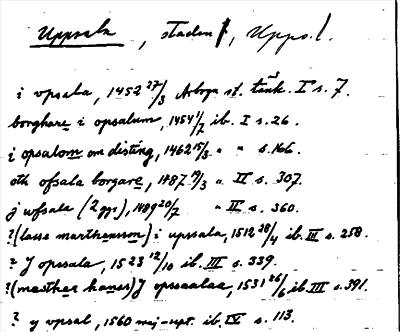 Uppsala, staden, Upps. l.
i vpsala, 1452 27/3 Arboga st. tänk. I s. 7.
borghare i opsalum, 1454 1/7 ib. I s. 26.
i opsalom om disting, 1462 15/3 " " s. 166.
oth ofsala borgare, 1487 19/3 " II s. 307.
j wfsala (2 ggr), 1489 20/7 " II s. 360.
? (lasse marthensson) i upssala, 1512 28/4 ib. III s. 258.
? J opssala, 1523 12/10 ib. III s. 339.
? (mesther hanes) J opssaalaa, 1531 26/6 ib. III s. 391.
? y vpsal, 1560 maj-sept. ib. IV s. 113.